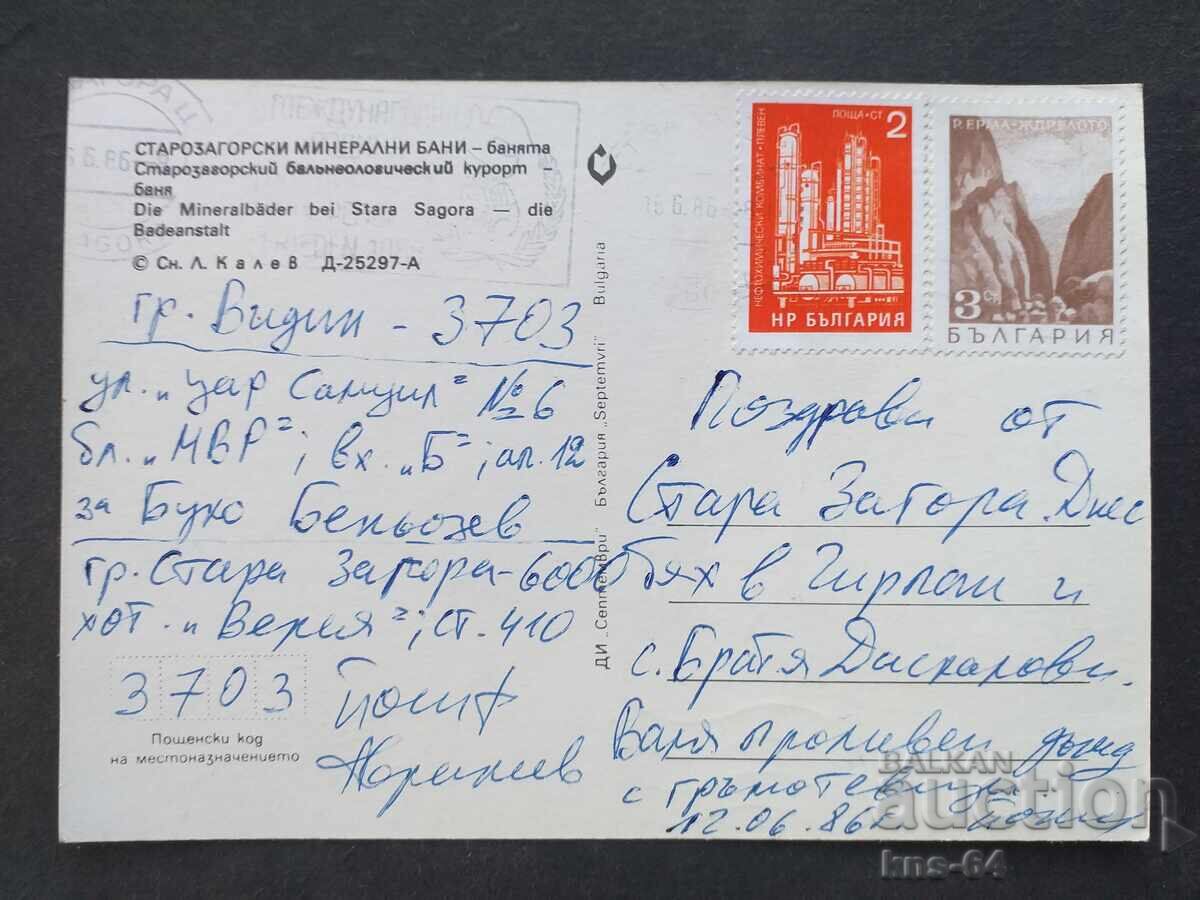 СТАРОЗАГОРСКИ МИНЕРАЛНИ БАНИ – банята
Старозагорский бальнеологический курорт –
баня
Die Mineralbäder bei Stara Sagora — die
Badeanstalt
© Сн. Л. Калев Д-25297-А
гр. Видин - 3703
ул. „Цар Самуил“ № 6
бл. „МВР“; вх. „Б“; ап. 12
за Буко Беньозев
гр. Стара Загора-6000
хот. „Верея“; ст. 410
3703 Йосиф
Пощенски код
на местоназначението
ДИ „Септември“ България „Septemvri“ Bulgaria
НЕФТОХИМИЧЕСКИ КОМБИНАТ · ПЛЕВЕН
ПОЩА·СТ 2
НР БЪЛГАРИЯ
Р. ЕРМА-ЖДРЕЛОТО
3 Ст.
БЪЛГАРИЯ
Поздрави от
Стара Загора. Днес
бях в Чирпан и
с. Братя Даскалови.
Валя проливен дъжд
с гръмотевици.
12.06.86г. Йосиф
BALKAN
auction
kns-64